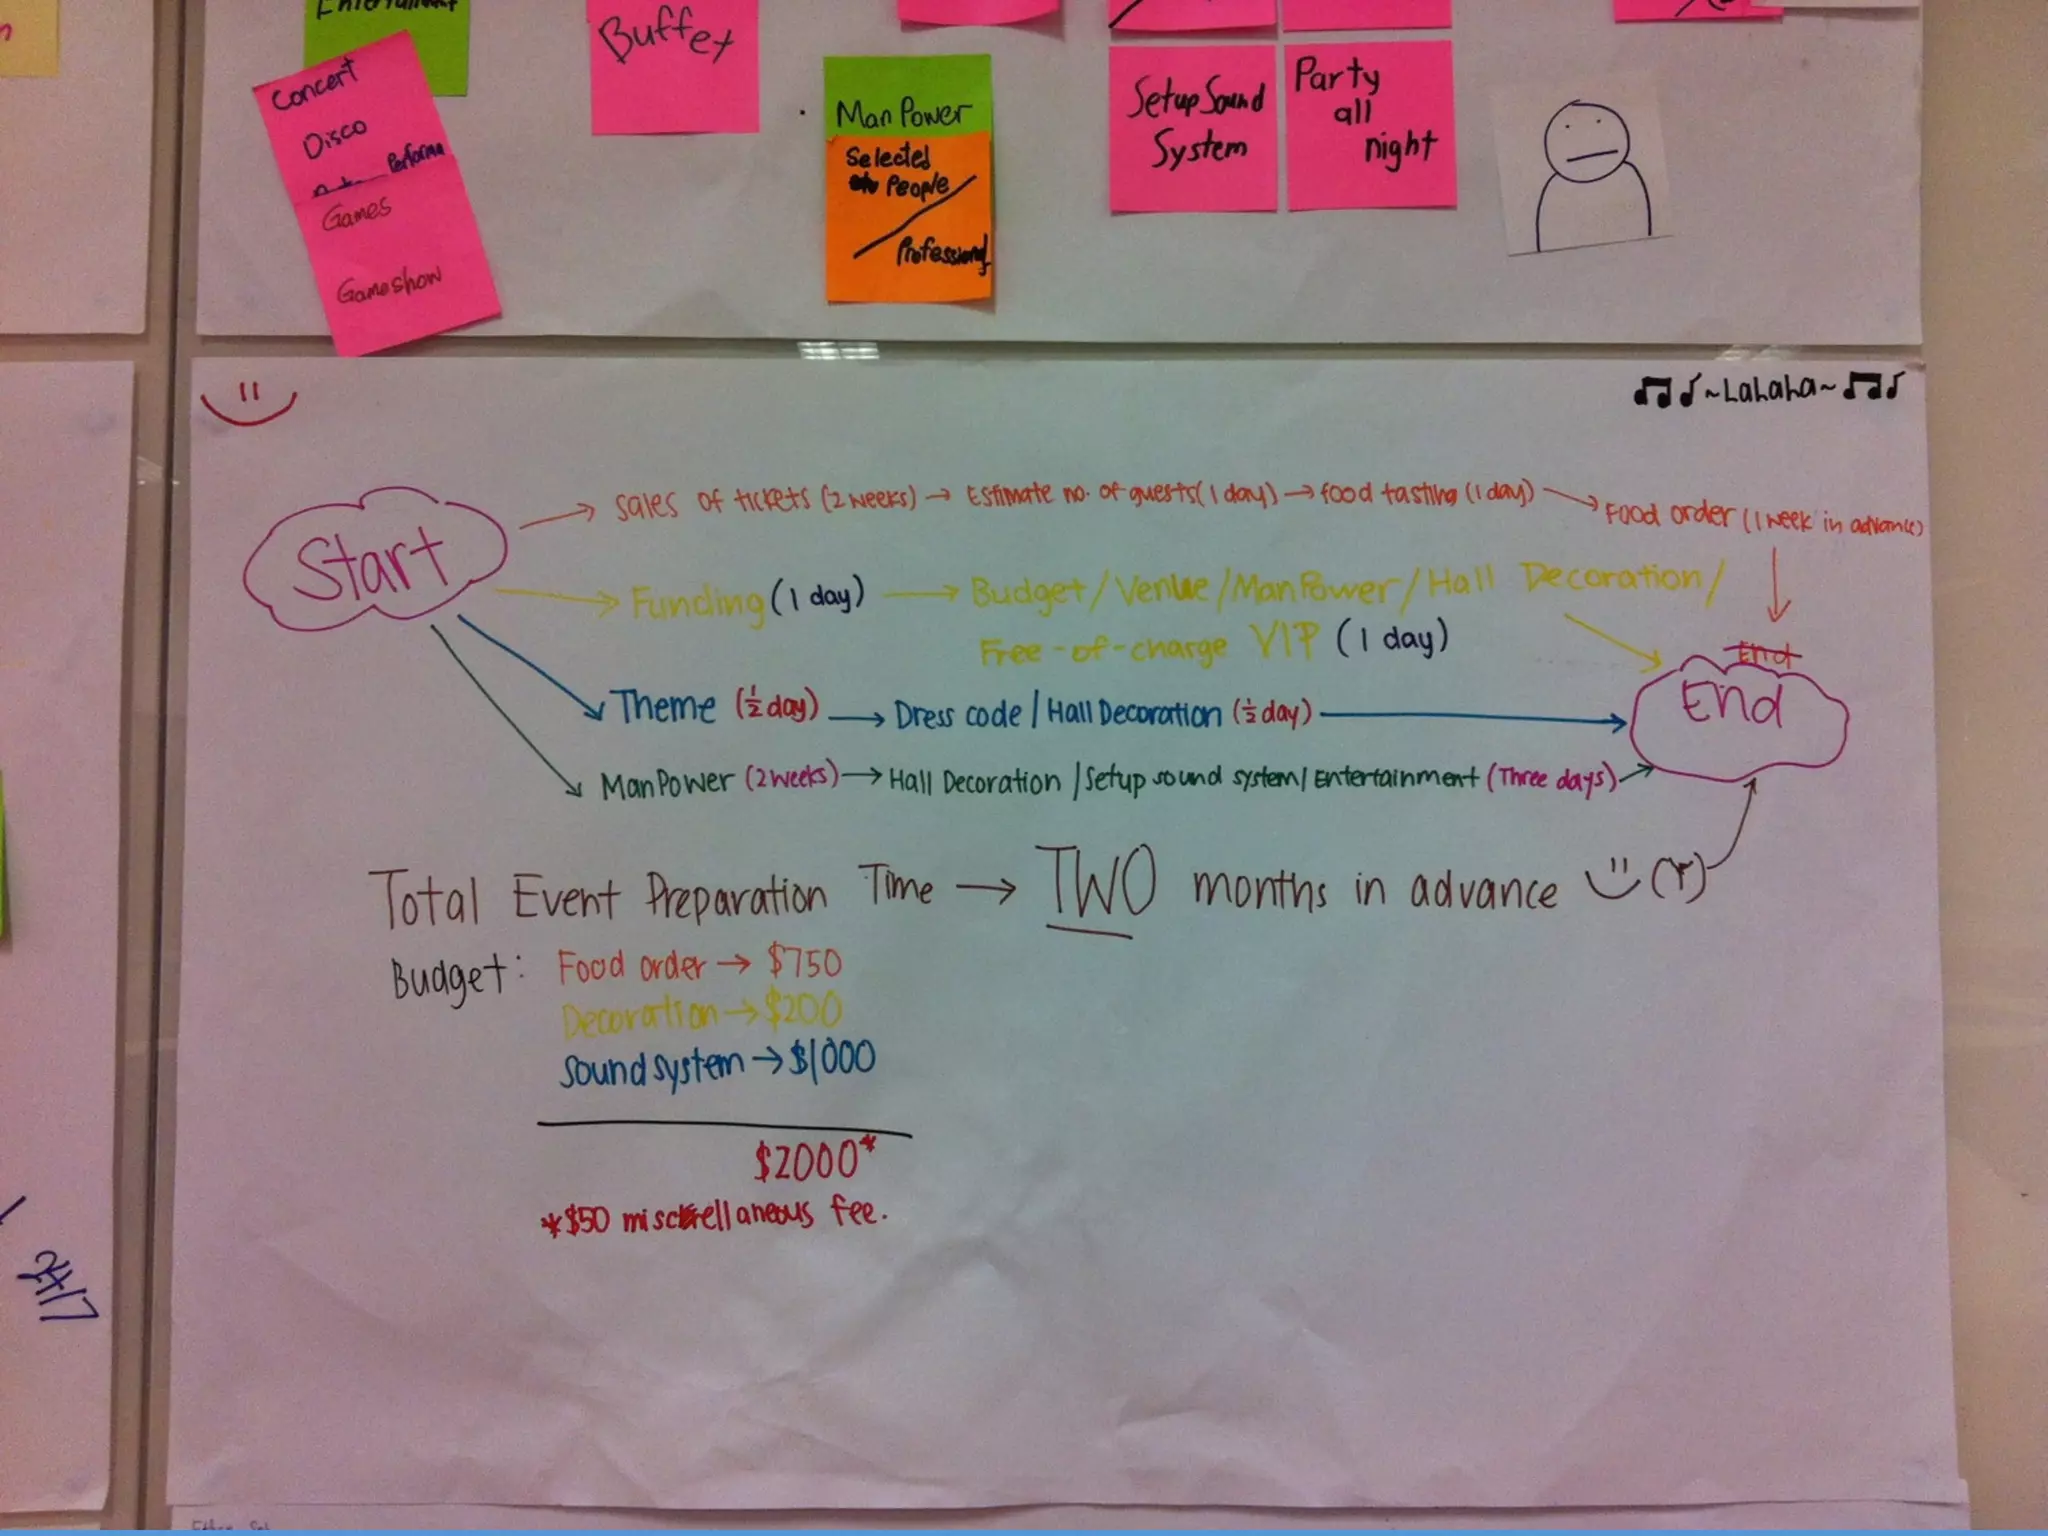 Entertainment
Concert
Disco
Performa
Games
Gameshow
Buffet
ManPower
Selected
People
Professional
Setup Sound
System
Party
all
night
♫ ♪ ~LaLaLa~ ♫ ♪
Start
sales of tickets (2 weeks) → Estimate no. of guests (1 day) → food tasting (1 day)
Food order (1 week in advance)
Funding (1 day) → Budget / Venue / ManPower / Hall Decoration /
Free-of-charge VIP (1 day)
End
End
Theme (½ day) → Dress code / Hall Decoration (½ day)
ManPower (2 weeks) → Hall Decoration / Setup sound system / Entertainment (Three days)
Total Event Preparation Time → TWO months in advance
Budget: Food order → $750
Decoration → $200
Sound system → $1000
$2000*
*$50 miscellaneous fee.